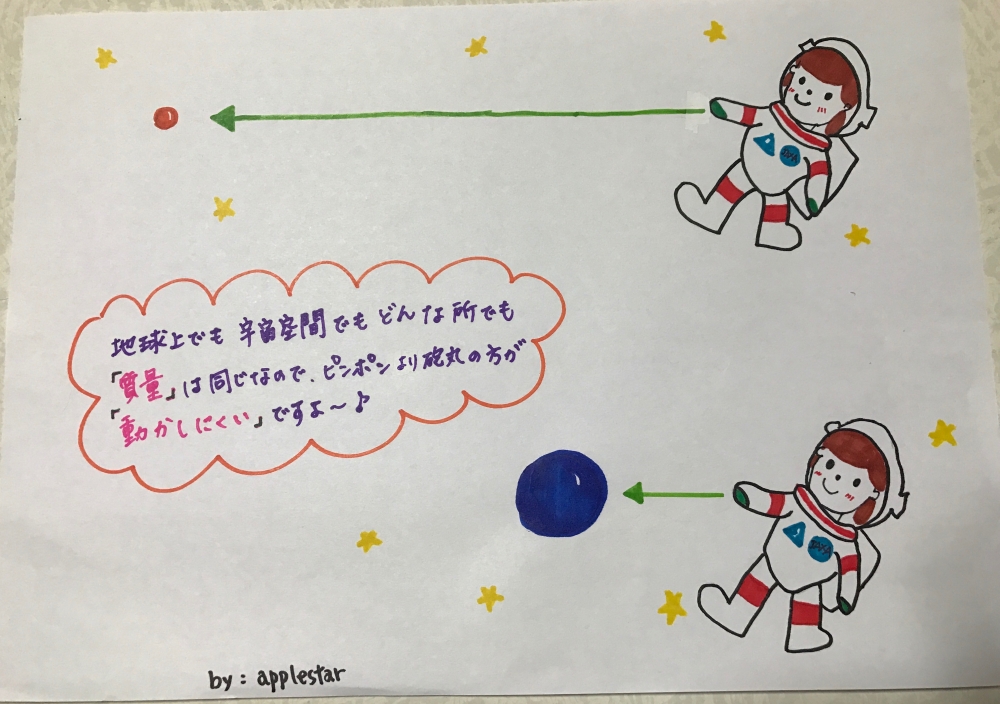 地球上でも宇宙空間でもどんな所でも
「質量」は同じなので、ピンポンより砲丸の方が
「動かしにくい」ですよ〜♪
by: applestar